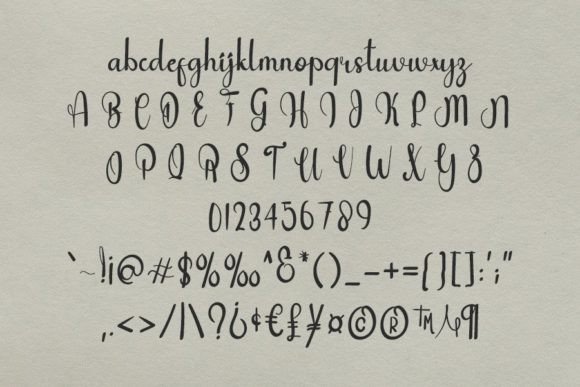 abcdefghijklmnopqrstuvwxyz
A B C D E F G H I J K L M N
O P Q R S T U V W X Y Z
0123456789
`~!¡@#$%‰^&*()_-+={}[]:';"
,.<>/|\?¿¢€£¥¤©®™¶